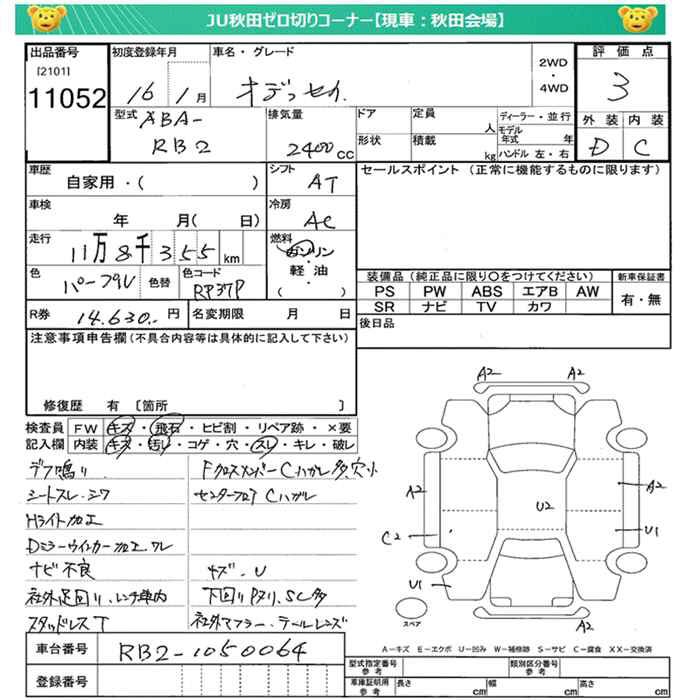 JU秋田ゼロ切りコーナー【現車：秋田会場】
出品番号
[2101]
11052
初度登録年月
16 1月
車名・グレード
オデッセイ
2WD
・
4WD
評価点
3
外装 内装
D C
型式
ABA-
RB2
排気量
2400cc
ドア
形状
定員
人
積載
kg
ディーラー・並行
モデル
年式
年
ハンドル 左・右
車歴
自家用・( )
シフト
AT
車検
年 月( 日)
冷房
AC
走行
11万8千355km
燃料
ガソリン
・
軽油
( )
色
パープル
色替
色コード
RP37P
R券
14.630.-円
名変期限 月 日
セールスポイント (正常に機能するものに限ります)
装備品(純正品に限り〇をつけてください)
PS PW ABS エアB AW
SR ナビ TV カワ
新車保証書
有・無
後日品
注意事項申告欄(不具合内容等は具体的に記入して下さい)
修復歴 有 〔箇所 〕
検査員
記入欄
FW キズ・飛石・ヒビ割・リペア跡・×要
内装 キズ・汚れ・コゲ・穴・スレ・キレ・破レ
デフ鳴り
シートスレ・シワ
Hライト加工
Dミラーウインカー加工、ワレ
ナビ不良
社外足回り、レンチ車内
スタッドレスT
Fクロスメンバー Cハガレ多、穴小
センターフロアCハガレ
キズ・U
下回りPヌリ、SC多
社外マフラー・テールレンズ
A2
A2
A2
A2
U2
C2
U1
U1
A2
スペア
A－キズ E－エクボ U－凹み W－補修跡 S－サビ C－腐食 XX－交換済
車台番号
RB2-1050064
登録番号
型式指定番号
参考
類別区分番号
参考
車庫証明用
参考
長さ cm
幅 cm
高さ cm